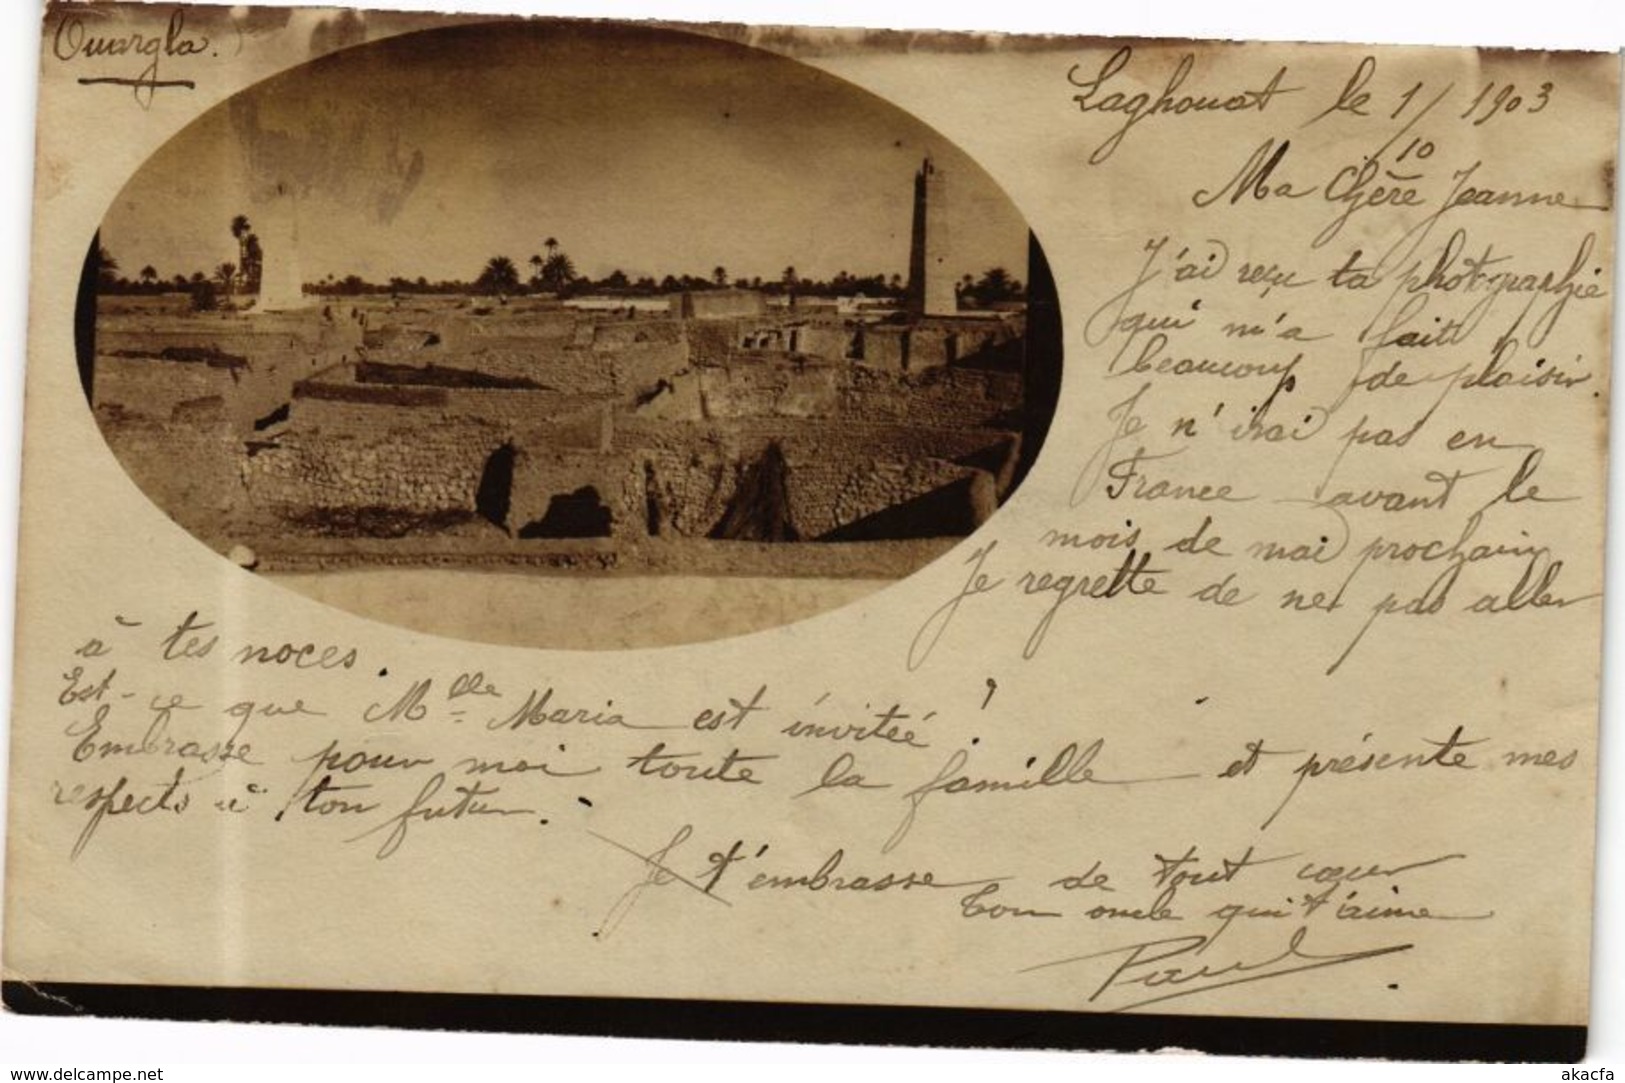 Ouargla.
Laghouat le 1/10 1903
Ma Chère Jeanne
J'ai reçu ta photographie
qui m'a fait
beaucoup de plaisir.
Je n'irai pas en
France avant le
mois de mai prochain
Je regrette de ne pas aller
à tes noces.
Est-ce que Mlle Maria est invitée ?
Embrasse pour moi toute la famille et présente mes
respects à ton futur.
Je t'embrasse de tout cœur
ton oncle qui t'aime
Paul
www.delcampe.net
akacfa